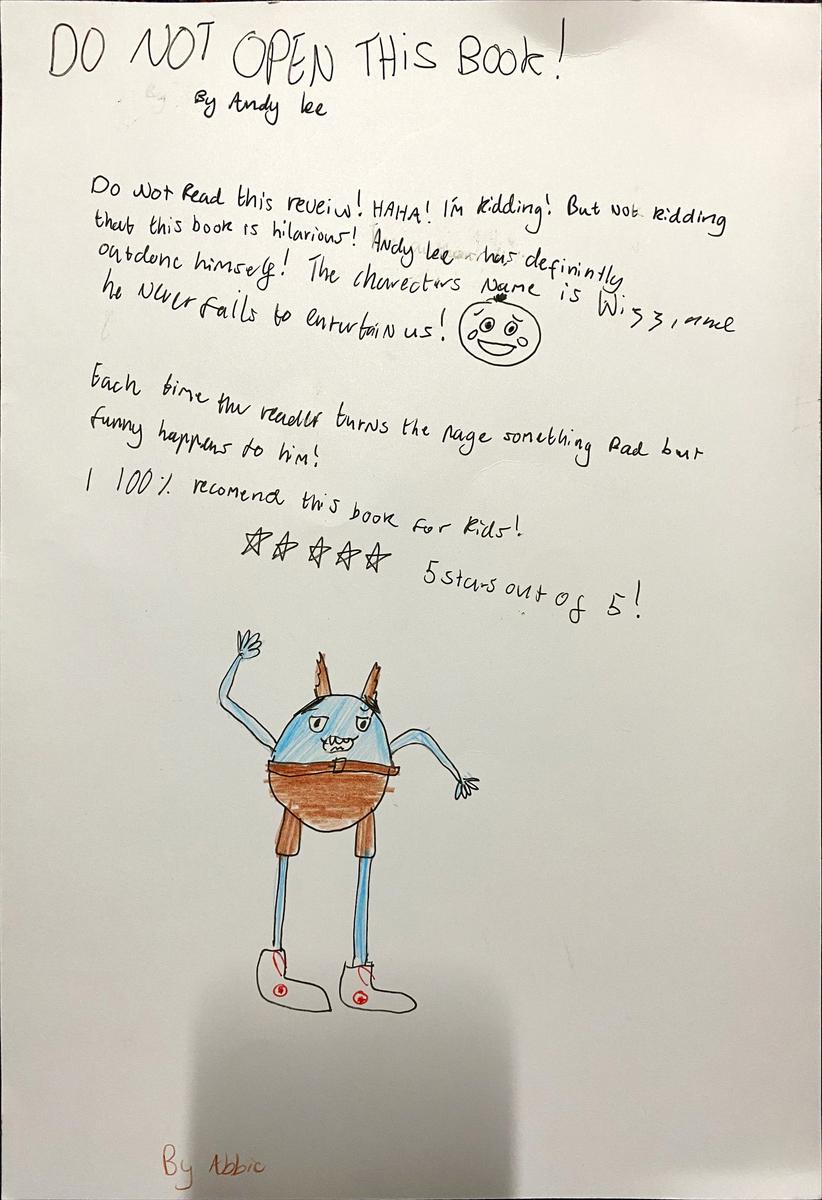 DO NOT OPEN THIS BOOK!
By Andy Lee
Do Not Read this reveiw! HAHA! I'm kidding! But not kidding
that this book is hilarious! Andy Lee has definintly
outdone himself! The charecters Name is Wizz, and
he Never fails to entertain us!
Each time the reader turns the page something Bad but
funny happens to him!
I 100% recomend this book for kids!
5 stars out of 5!
By Abbie